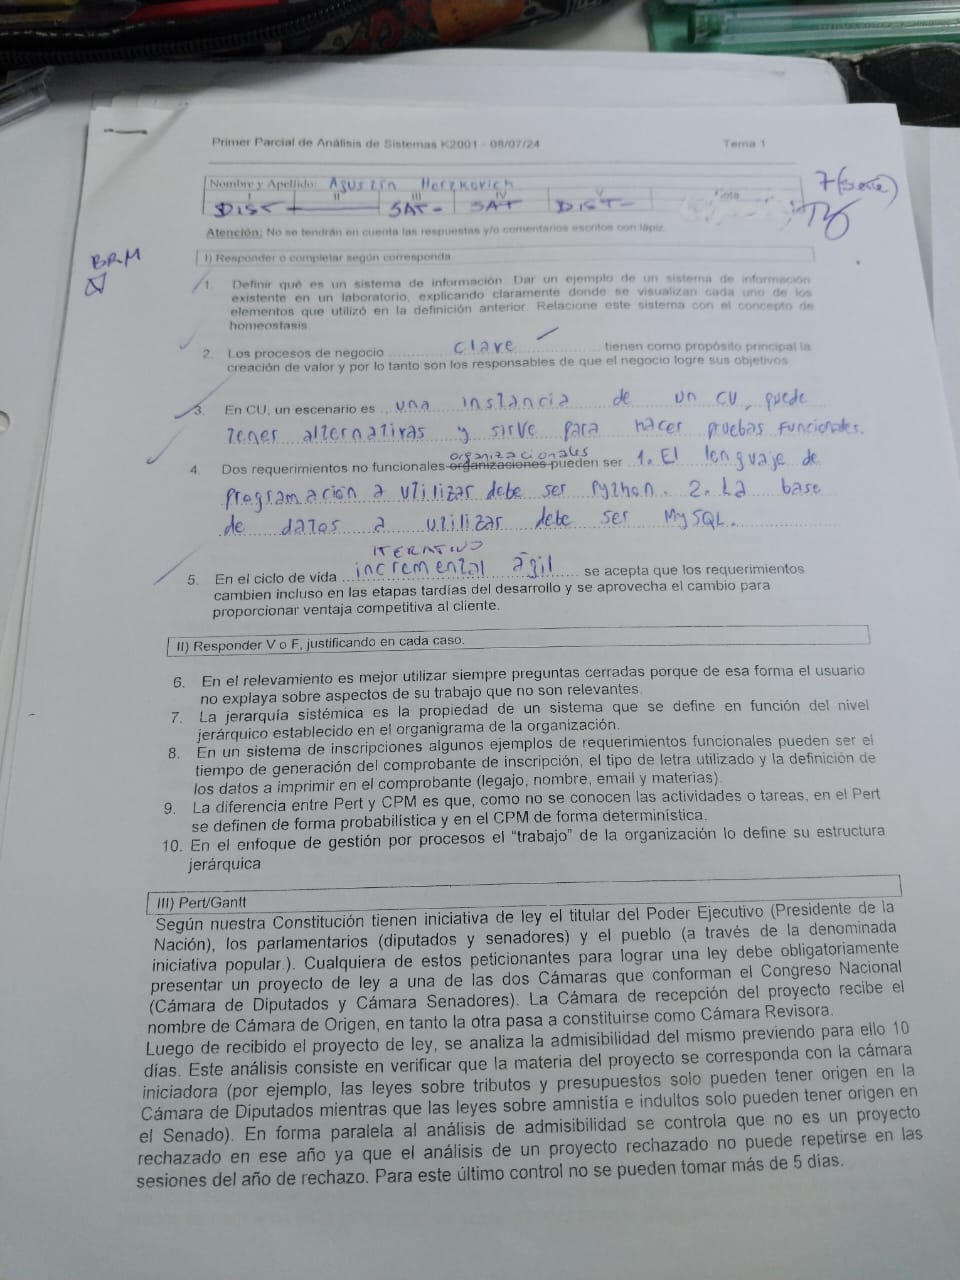 Primer Parcial de Análisis de Sistemas K2001 - 08/07/24 Tema 1
Nombre y Apellido: Agustín Herzkovich
I II III IV V Nota
DIST SAT- SAT DIST-
7 (siete)
Atención: No se tendrán en cuenta las respuestas y/o comentarios escritos con lápiz.
BRM
I) Responder o completar según corresponda
1. Definir qué es un sistema de información. Dar un ejemplo de un sistema de información
existente en un laboratorio, explicando claramente donde se visualizan cada uno de los
elementos que utilizó en la definición anterior. Relacione este sistema con el concepto de
homeostasis
2. Los procesos de negocio clave tienen como propósito principal la
creación de valor y por lo tanto son los responsables de que el negocio logre sus objetivos
3. En CU, un escenario es una instancia de un CU, puede
tener alternativas y sirve para hacer pruebas funcionales.
organizacionales
4. Dos requerimientos no funcionales organizaciones pueden ser 1. El lenguaje de
programación a utilizar debe ser Python. 2. La base
de datos a utilizar debe ser MySQL.
ITERATIVO
5. En el ciclo de vida incremental ágil se acepta que los requerimientos
cambien incluso en las etapas tardías del desarrollo y se aprovecha el cambio para
proporcionar ventaja competitiva al cliente.
II) Responder V o F, justificando en cada caso.
6. En el relevamiento es mejor utilizar siempre preguntas cerradas porque de esa forma el usuario
no explaya sobre aspectos de su trabajo que no son relevantes.
7. La jerarquía sistémica es la propiedad de un sistema que se define en función del nivel
jerárquico establecido en el organigrama de la organización.
8. En un sistema de inscripciones algunos ejemplos de requerimientos funcionales pueden ser el
tiempo de generación del comprobante de inscripción, el tipo de letra utilizado y la definición de
los datos a imprimir en el comprobante (legajo, nombre, email y materias)
9. La diferencia entre Pert y CPM es que, como no se conocen las actividades o tareas, en el Pert
se definen de forma probabilística y en el CPM de forma determinística.
10. En el enfoque de gestión por procesos el "trabajo" de la organización lo define su estructura
jerárquica
III) Pert/Gantt
Según nuestra Constitución tienen iniciativa de ley el titular del Poder Ejecutivo (Presidente de la
Nación), los parlamentarios (diputados y senadores) y el pueblo (a través de la denominada
iniciativa popular.). Cualquiera de estos peticionantes para lograr una ley debe obligatoriamente
presentar un proyecto de ley a una de las dos Cámaras que conforman el Congreso Nacional
(Cámara de Diputados y Cámara Senadores). La Cámara de recepción del proyecto recibe el
nombre de Cámara de Origen, en tanto la otra pasa a constituirse como Cámara Revisora.
Luego de recibido el proyecto de ley, se analiza la admisibilidad del mismo previendo para ello 10
días. Este análisis consiste en verificar que la materia del proyecto se corresponda con la cámara
iniciadora (por ejemplo, las leyes sobre tributos y presupuestos solo pueden tener origen en la
Cámara de Diputados mientras que las leyes sobre amnistía e indultos solo pueden tener origen en
el Senado). En forma paralela al análisis de admisibilidad se controla que no es un proyecto
rechazado en ese año ya que el análisis de un proyecto rechazado no puede repetirse en las
sesiones del año de rechazo. Para este último control no se pueden tomar más de 5 días.